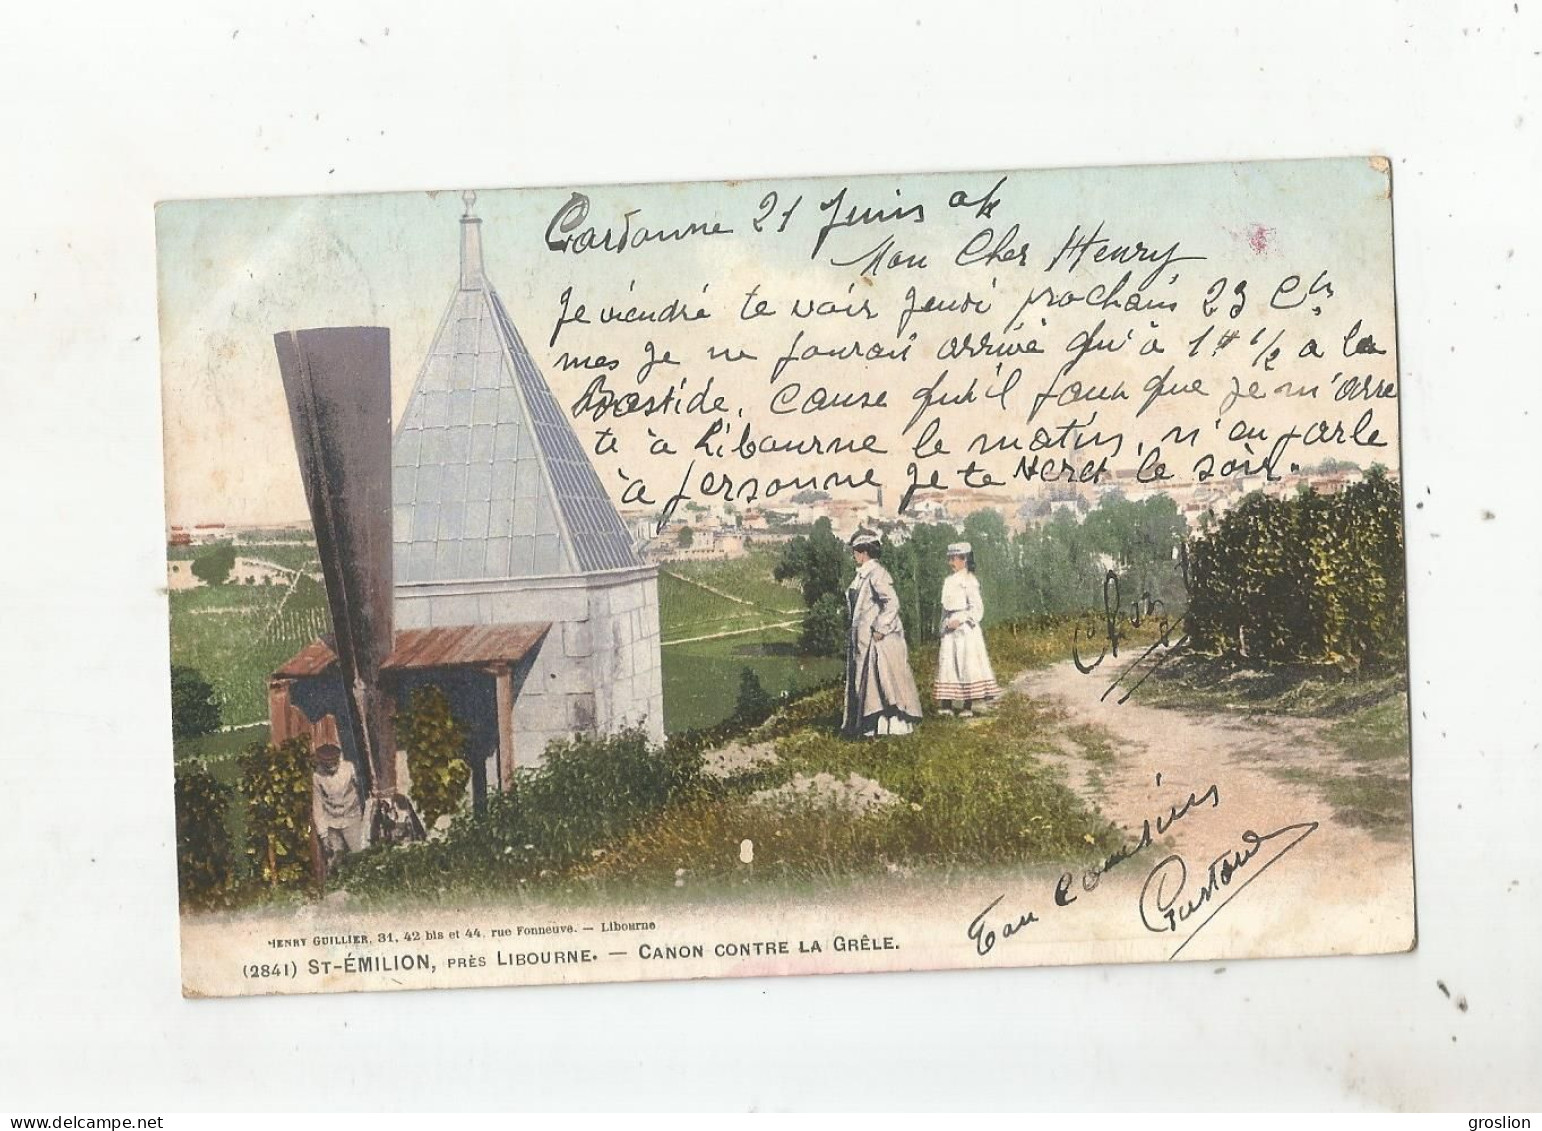 Cardonne 21 Juin 04
Mon Cher Henry
Je viendré te voir Jeudi prochain 23 Ct
mes Je ne pourai arrivé qu'à 1 H 1/2 a la
Bastide, cause qu'il faut que Je m'arre
te à Libourne le matin, n'en parle
à personne Je te verai le soir.
Ton cousin
Gustave
HENRY GUILLIER, 31, 42 bis et 44, rue Fonneuve. — Libourne
(2841) ST-ÉMILION, PRÈS LIBOURNE. — CANON CONTRE LA GRÊLE.
groslion